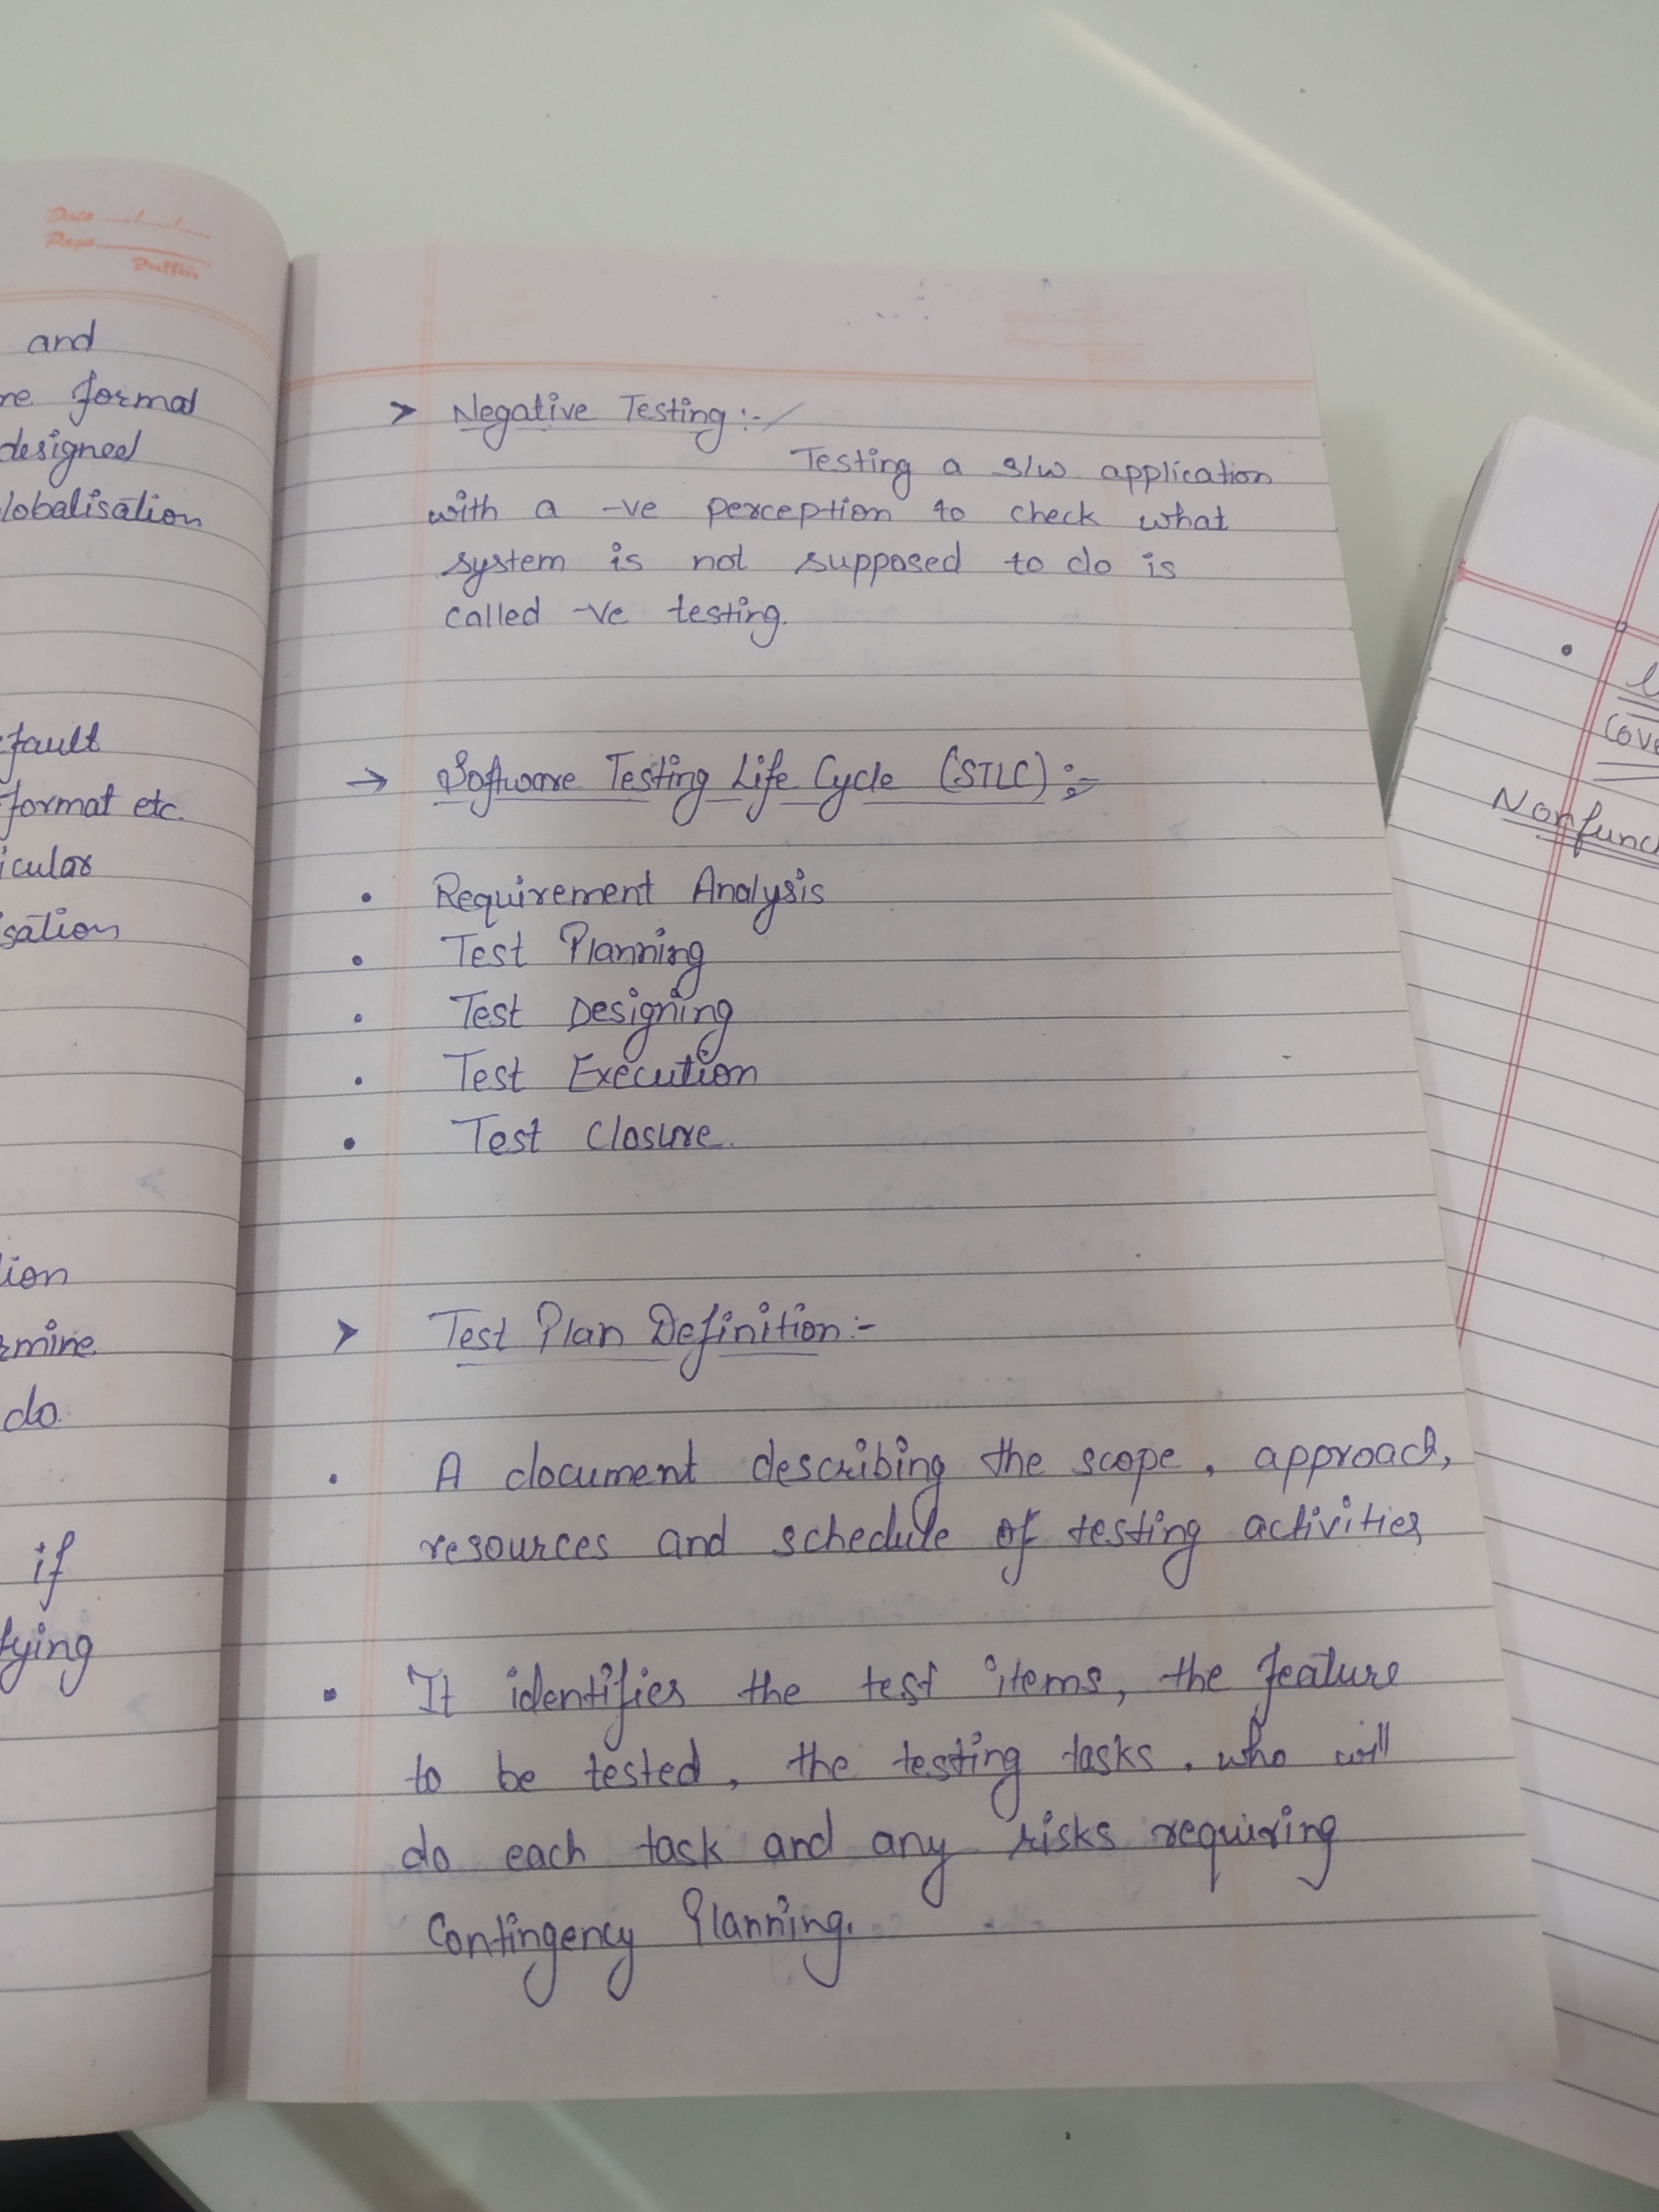 Date
Page
Puffin
and
formal
designed
lobalisation
fault
format etc.
icular
sation
ion
mine.
do.
if
fying
> Negative Testing :-
Testing a s/w application
with a -ve perception to check what
system is not supposed to do is
called -ve testing.
→ Software Testing Life Cycle (STLC) :-
• Requirement Analysis
• Test Planning
• Test Designing
• Test Execution
• Test Closure.
> Test Plan Definition :-
• A document describing the scope, approach,
resources and schedule of testing activities
• It identifies the test items, the feature
to be tested, the testing tasks, who will
do each task and any risks requiring
Contingency Planning.
Cove
Nonfunc